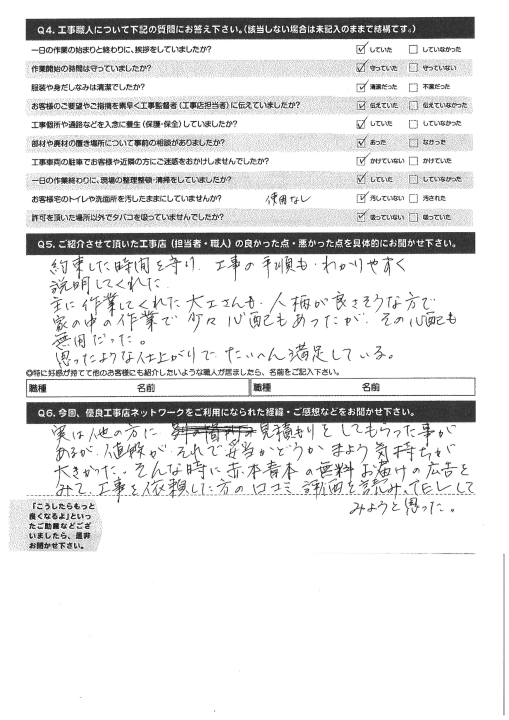 Q4. 工事職人について下記の質問にお答え下さい。(該当しない場合は未記入のままで結構です。)
一日の作業の始まりと終わりに、挨拶をしていましたか? していた していなかった
作業開始の時間は守っていましたか? 守っていた 守っていない
服装や身だしなみは清潔でしたか? 清潔だった 不潔だった
お客様のご要望やご指摘を素早く工事監督者(工事店担当者)に伝えていましたか? 伝えていた 伝えていなかった
工事個所や通路などを入念に養生(保護・保全)していましたか? していた していなかった
部材や廃材の置き場所について事前の相談がありましたか? あった なかった
工事車両の駐車でお客様や近隣の方にご迷惑をおかけしませんでしたか? かけていない かけていた
一日の作業終わりに、現場の整理整頓・清掃をしていましたか? していた していなかった
お客様宅のトイレや洗面所を汚したままにしていませんか? 使用なし 汚していない 汚された
許可を頂いた場所以外でタバコを吸っていませんでしたか? 吸っていない 吸っていた
Q5. ご紹介させて頂いた工事店(担当者・職人)の良かった点・悪かった点を具体的にお聞かせ下さい。
約束した時間を守り、工事の手順も、わかりやすく
説明してくれた。
主に作業してくれた大工さんも、人柄が良さそうな方で
家の中の作業で少々心配もあったが、その心配も
無用だった。
思ったような仕上がりで、たいへん満足している。
◎特に好感が持てて他のお客様にも紹介したいような職人が居ましたら、名前をご記入下さい。
職種 名前 職種 名前
Q6. 今回、優良工事店ネットワークをご利用になられた経緯・ご感想などをお聞かせ下さい。
実は他の方に 見積もりをしてもらった事が
あるが、値段が、それで妥当かどうか まよう気持ちが
大きかった。そんな時に赤本青本の無料お届けの広告を
みて、工事を依頼した方の口コミ、評価を読み、TELして
みようと思った。
「こうしたらもっと
良くなるよ」といっ
たご助言などござ
いましたら、是非
お聞かせ下さい。